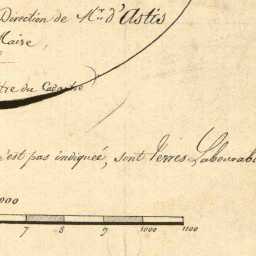 Direction de Mr. d'Astis
Maire,
tre du Cadastre)
n'est pas indiquée, sont Terres Labourab
000
7 8 9 1000 1100